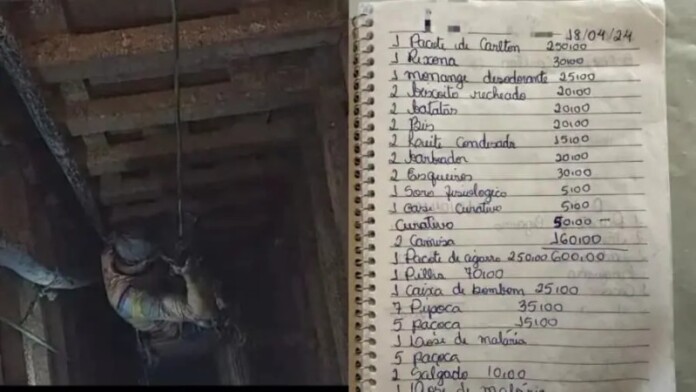 18/04/24
1 Pacote de Carlton 250,00
1 Rexona 30,00
1 monange desodorante 25,00
2 biscoito recheado 20,00
2 batatas 20,00
2 Bis 20,00
2 Leite Condesado 15,00
2 barbeador 20,00
2 Esqueiros 30,00
1 Soro fisiologico 5,00
1 Gase Curativo 5,00
Curativo 50,00
2 Camisa 160,00
1 Pacote de 250,00 600,00
1 Pilha 70,00
1 Caixa de bombom 25,00
7 Pipoca 35,00
5 paçoca 15,00
1 Dose de malária
5 paçoca
2 Salgado 10,00
1 Dose de malária